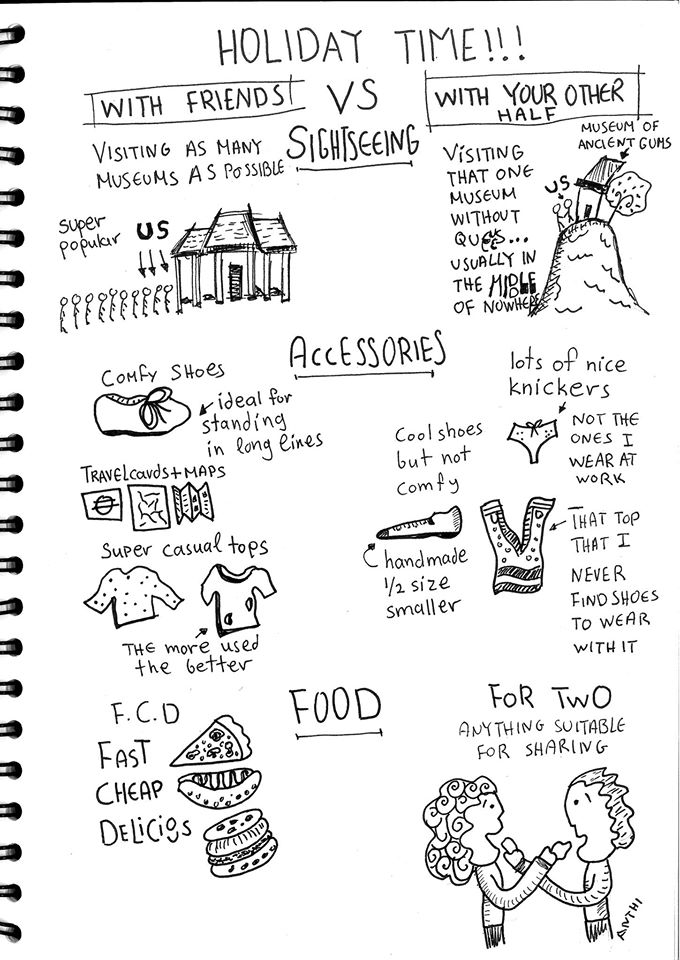 HOLIDAY TIME!!!
WITH FRIENDS
VS
WITH YOUR OTHER
HALF
SIGHTSEEING
VISITING AS MANY
MUSEUMS AS POSSIBLE
super
popular
US
VISITING
THAT ONE
MUSEUM
WITHOUT
USUALLY IN
THE MIDDLE
OF NOWHERE
MUSEUM OF
ANCIENT GUMS
US
ACCESSORIES
COMFY SHOES
ideal for
standing
in long lines
TRAVELcards+MAPS
Super casual tops
THE more used
the better
lots of nice
knickers
NOT THE
ONES I
WEAR AT
WORK
Cool shoes
but not
comfy
handmade
1/2 size
smaller
THAT TOP
THAT I
NEVER
FIND SHOES
TO WEAR
WITH IT
FOOD
F.C.D
FAST
CHEAP
DELICIOS
FOR TWO
ANYTHING SUITABLE
FOR SHARING
ANTHI